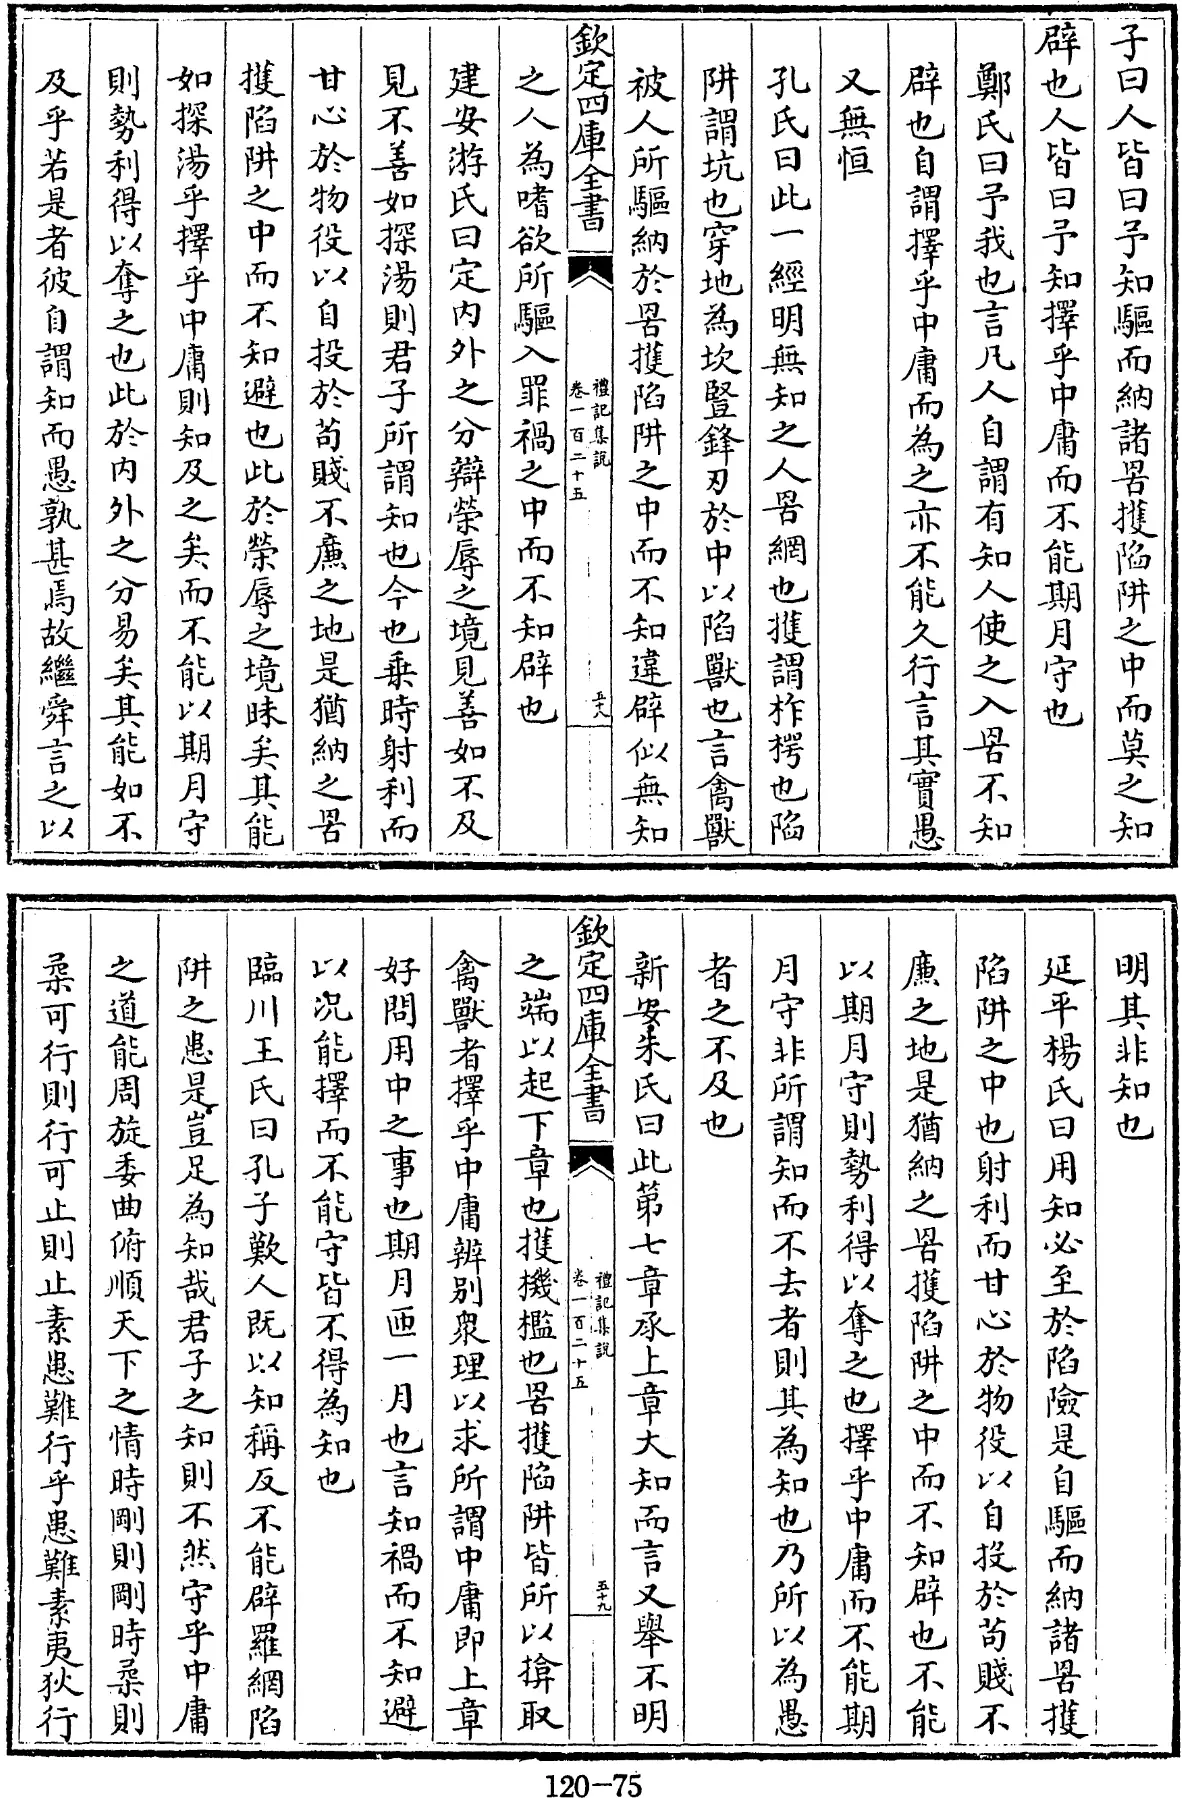 子曰人皆曰予知驅而納諸罟擭陷阱之中而莫之知
辟也人皆曰予知擇乎中庸而不能期月守也
鄭氏曰予我也言凡人自謂有知人使之入罟不知
辟也自謂擇乎中庸而為之亦不能久行言其實愚
又無恒
孔氏曰此一經明無知之人罟網也擭謂柞楞也陷
阱謂坑也穿地為坎豎鋒刃於中以陷獸也言禽獸
被人所驅納於罟擭陷阱之中而不知違辟似無知
欽定四庫全書
禮記集說
卷一百二十五
五十八
之人為嗜欲所驅入罪禍之中而不知辟也
建安游氏曰定內外之分辯榮辱之境見善如不及
見不善如探湯則君子所謂知也今也乗時射利而
甘心於物役以自投於苟賤不廉之地是猶納之罟
擭陷阱之中而不知避也此於榮辱之境昧矣其能
如探湯乎擇乎中庸則知及之矣而不能以期月守
則勢利得以奪之也此於内外之分易矣其能如不
及乎若是者彼自謂知而愚孰甚焉故繼舜言之以
明其非知也
延平楊氏曰用知必至於陷險是自驅而納諸罟擭
陷阱之中也射利而甘心於物役以自投於苟賤不
廉之地是猶納之罟擭陷阱之中而不知辟也不能
以期月守則勢利得以奪之也擇乎中庸而不能期
月守非所謂知而不去者則其為知也乃所以為愚
者之不及也
新安朱氏曰此第七章承上章大知而言又舉不明
欽定四庫全書
禮記集說
卷一百二十五
五十九
之端以起下章也擭機檻也罟擭陷阱皆所以揜取
禽獸者擇乎中庸辨别衆理以求所謂中庸即上章
好問用中之事也期月匝一月也言知禍而不知避
以况能擇而不能守皆不得為知也
臨川王氏曰孔子歎人既以知稱反不能辟羅網陷
阱之患是豈足為知哉君子之知則不然守乎中庸
之道能周旋委曲俯順天下之情時剛則剛時柔則
柔可行則行可止則止素患難行乎患難素夷狄行
120-75